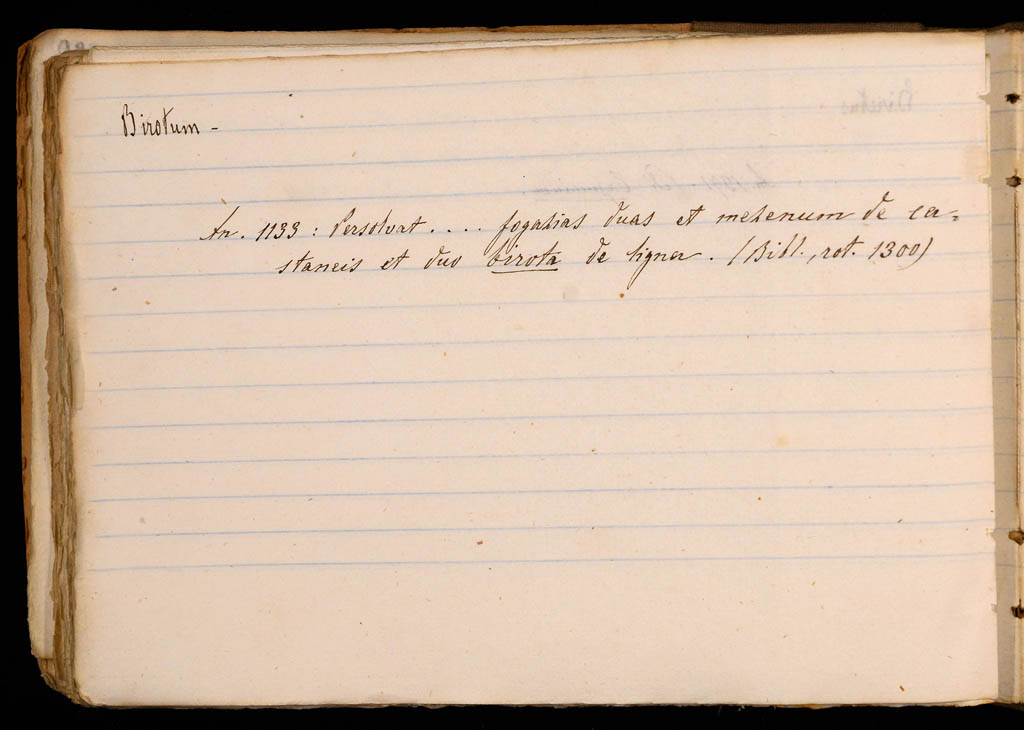 Birotum -
An. 1133 : Persolvat .... fogatias duas et mehenum de ca=
staneis et duo birota de ligna. (Bibl., rot. 1300)